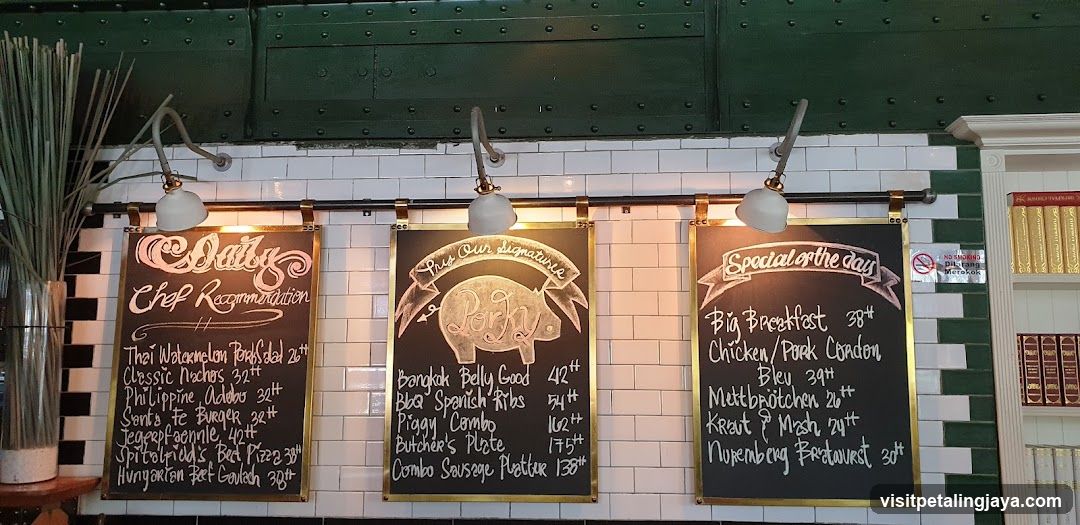 Daily
Chef Recommendation
Thai Watermelon Pork Salad 26++
Classic Nachos 32++
Philippine Adobo 32++
Santa Fe Burger 32++
Jegerpfaonnle 42++
Spitalfield's Best Pizza 38++
Hungarian Beef Goulach 38++
Pry Our Signature
Porky
Bangkok Belly Good 42++
BBQ Spanish Ribs 54++
Piggy Combo 162++
Butcher's Plate 175++
Combo Sausage Plattur 138++
Special of the day
Big Breakfast 38++
Chicken/Pork Cordon
Bleu 39++
Mettbrötchen 26++
Kraut & Mash 29++
Nuremberg Bratwurst 30++
NO SMOKING
Dilarang
Merokok
visitpetalingjaya.com